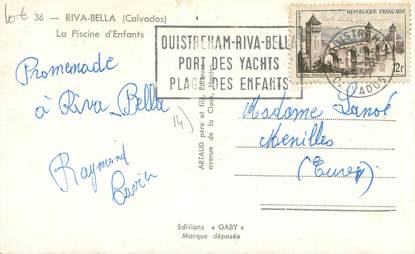 lot
36 - RIVA-BELLA (Calvados)
La Piscine d'Enfants
OUISTREHAM-RIVA-BELLA
PORT DES YACHTS
PLAGE DES ENFANTS
REPUBLIQUE FRANÇAISE
12f
OUISTREHAM
CALVADOS
Promenade
à Riva-Bella
Raymond
14)
ARTAUD père et fils, Éditeurs
avenue de la Close, Nantes
Madame Lanoë
Menilles
(Eure)
Editions « GABY »
Marque déposée